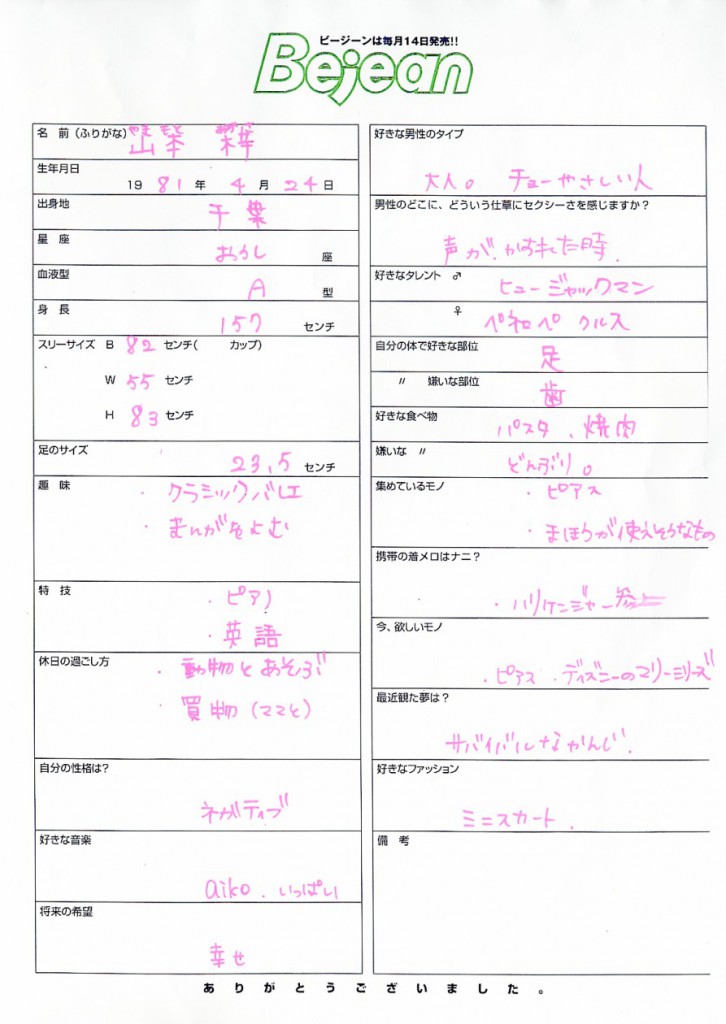 ビージーンは毎月14日発売!!
Bejean
名 前(ふりがな) 山本 梓
生年月日
19 81 年 4 月 24 日
出身地 千葉
星 座 おうし 座
血液型 A 型
身 長 157 センチ
スリーサイズ B 82 センチ( カップ)
W 55 センチ
H 83 センチ
足のサイズ 23.5 センチ
趣 味 ・クラシックバレエ
・まんがをよむ
特 技 ・ピアノ
・英語
休日の過ごし方 ・動物とあそぶ
・買物(ママと)
自分の性格は?
ネガティブ
好きな音楽
aiko . いっぱい
将来の希望
幸せ
好きな男性のタイプ
大人。 チューやさしい人
男性のどこに、どういう仕草にセクシーさを感じますか?
声が、かすれた時.
好きなタレント ♂ ヒュー ジャックマン
♀ ペネロペ クルス
自分の体で好きな部位 足
〃 嫌いな部位 歯
好きな食べ物 パスタ、焼肉
嫌いな 〃 どんぶり。
集めているモノ ・ピアス
・まほうが使えそうなもの
携帯の着メロはナニ?
・ハリケンジャー参上
今、欲しいモノ
・ピアス ・ディズニーのマリーシリーズ
最近観た夢は?
サバイバルなかんじ.
好きなファッション
ミニスカート.
備 考
ありがとうございました。